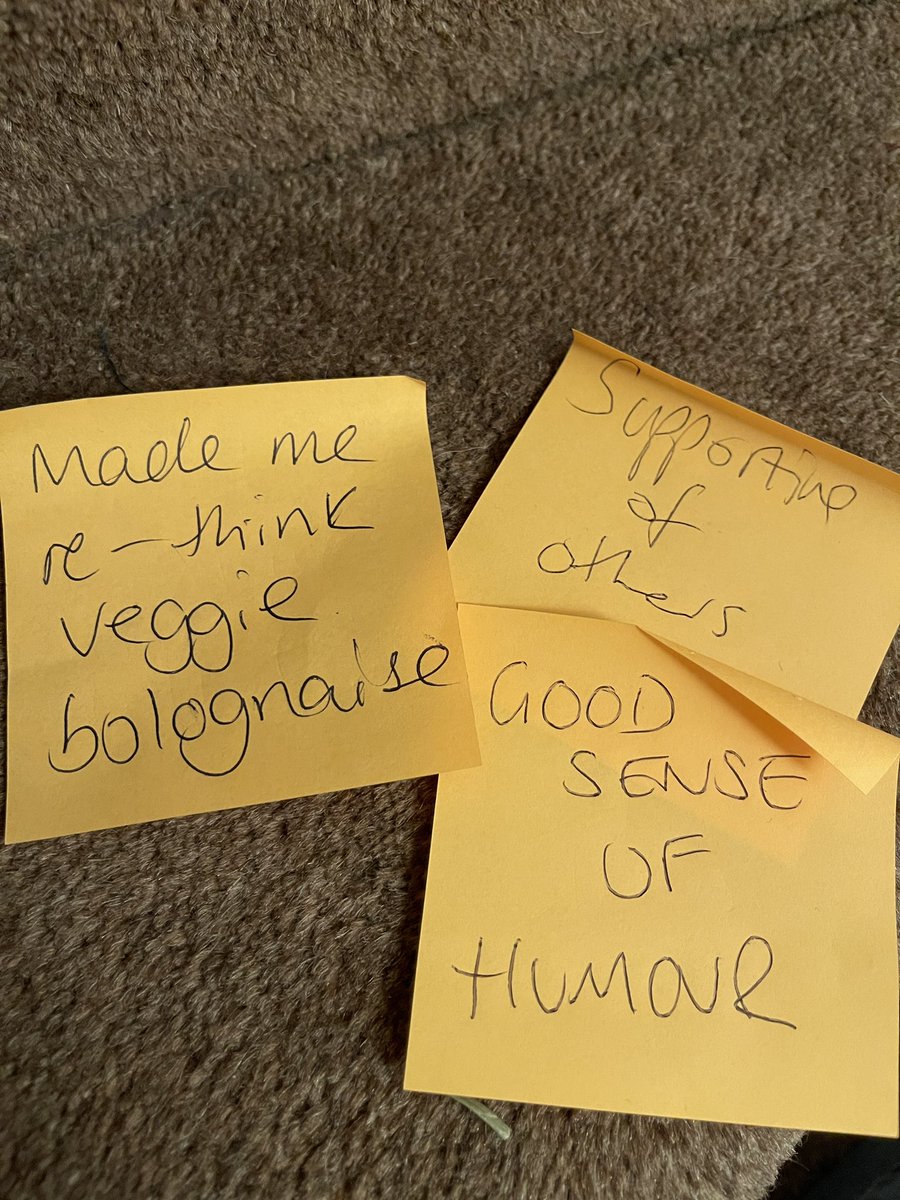 Made me
re-think
veggie
bolognaise
Supportive
of
others
GOOD
SENSE
OF
HUMOUR